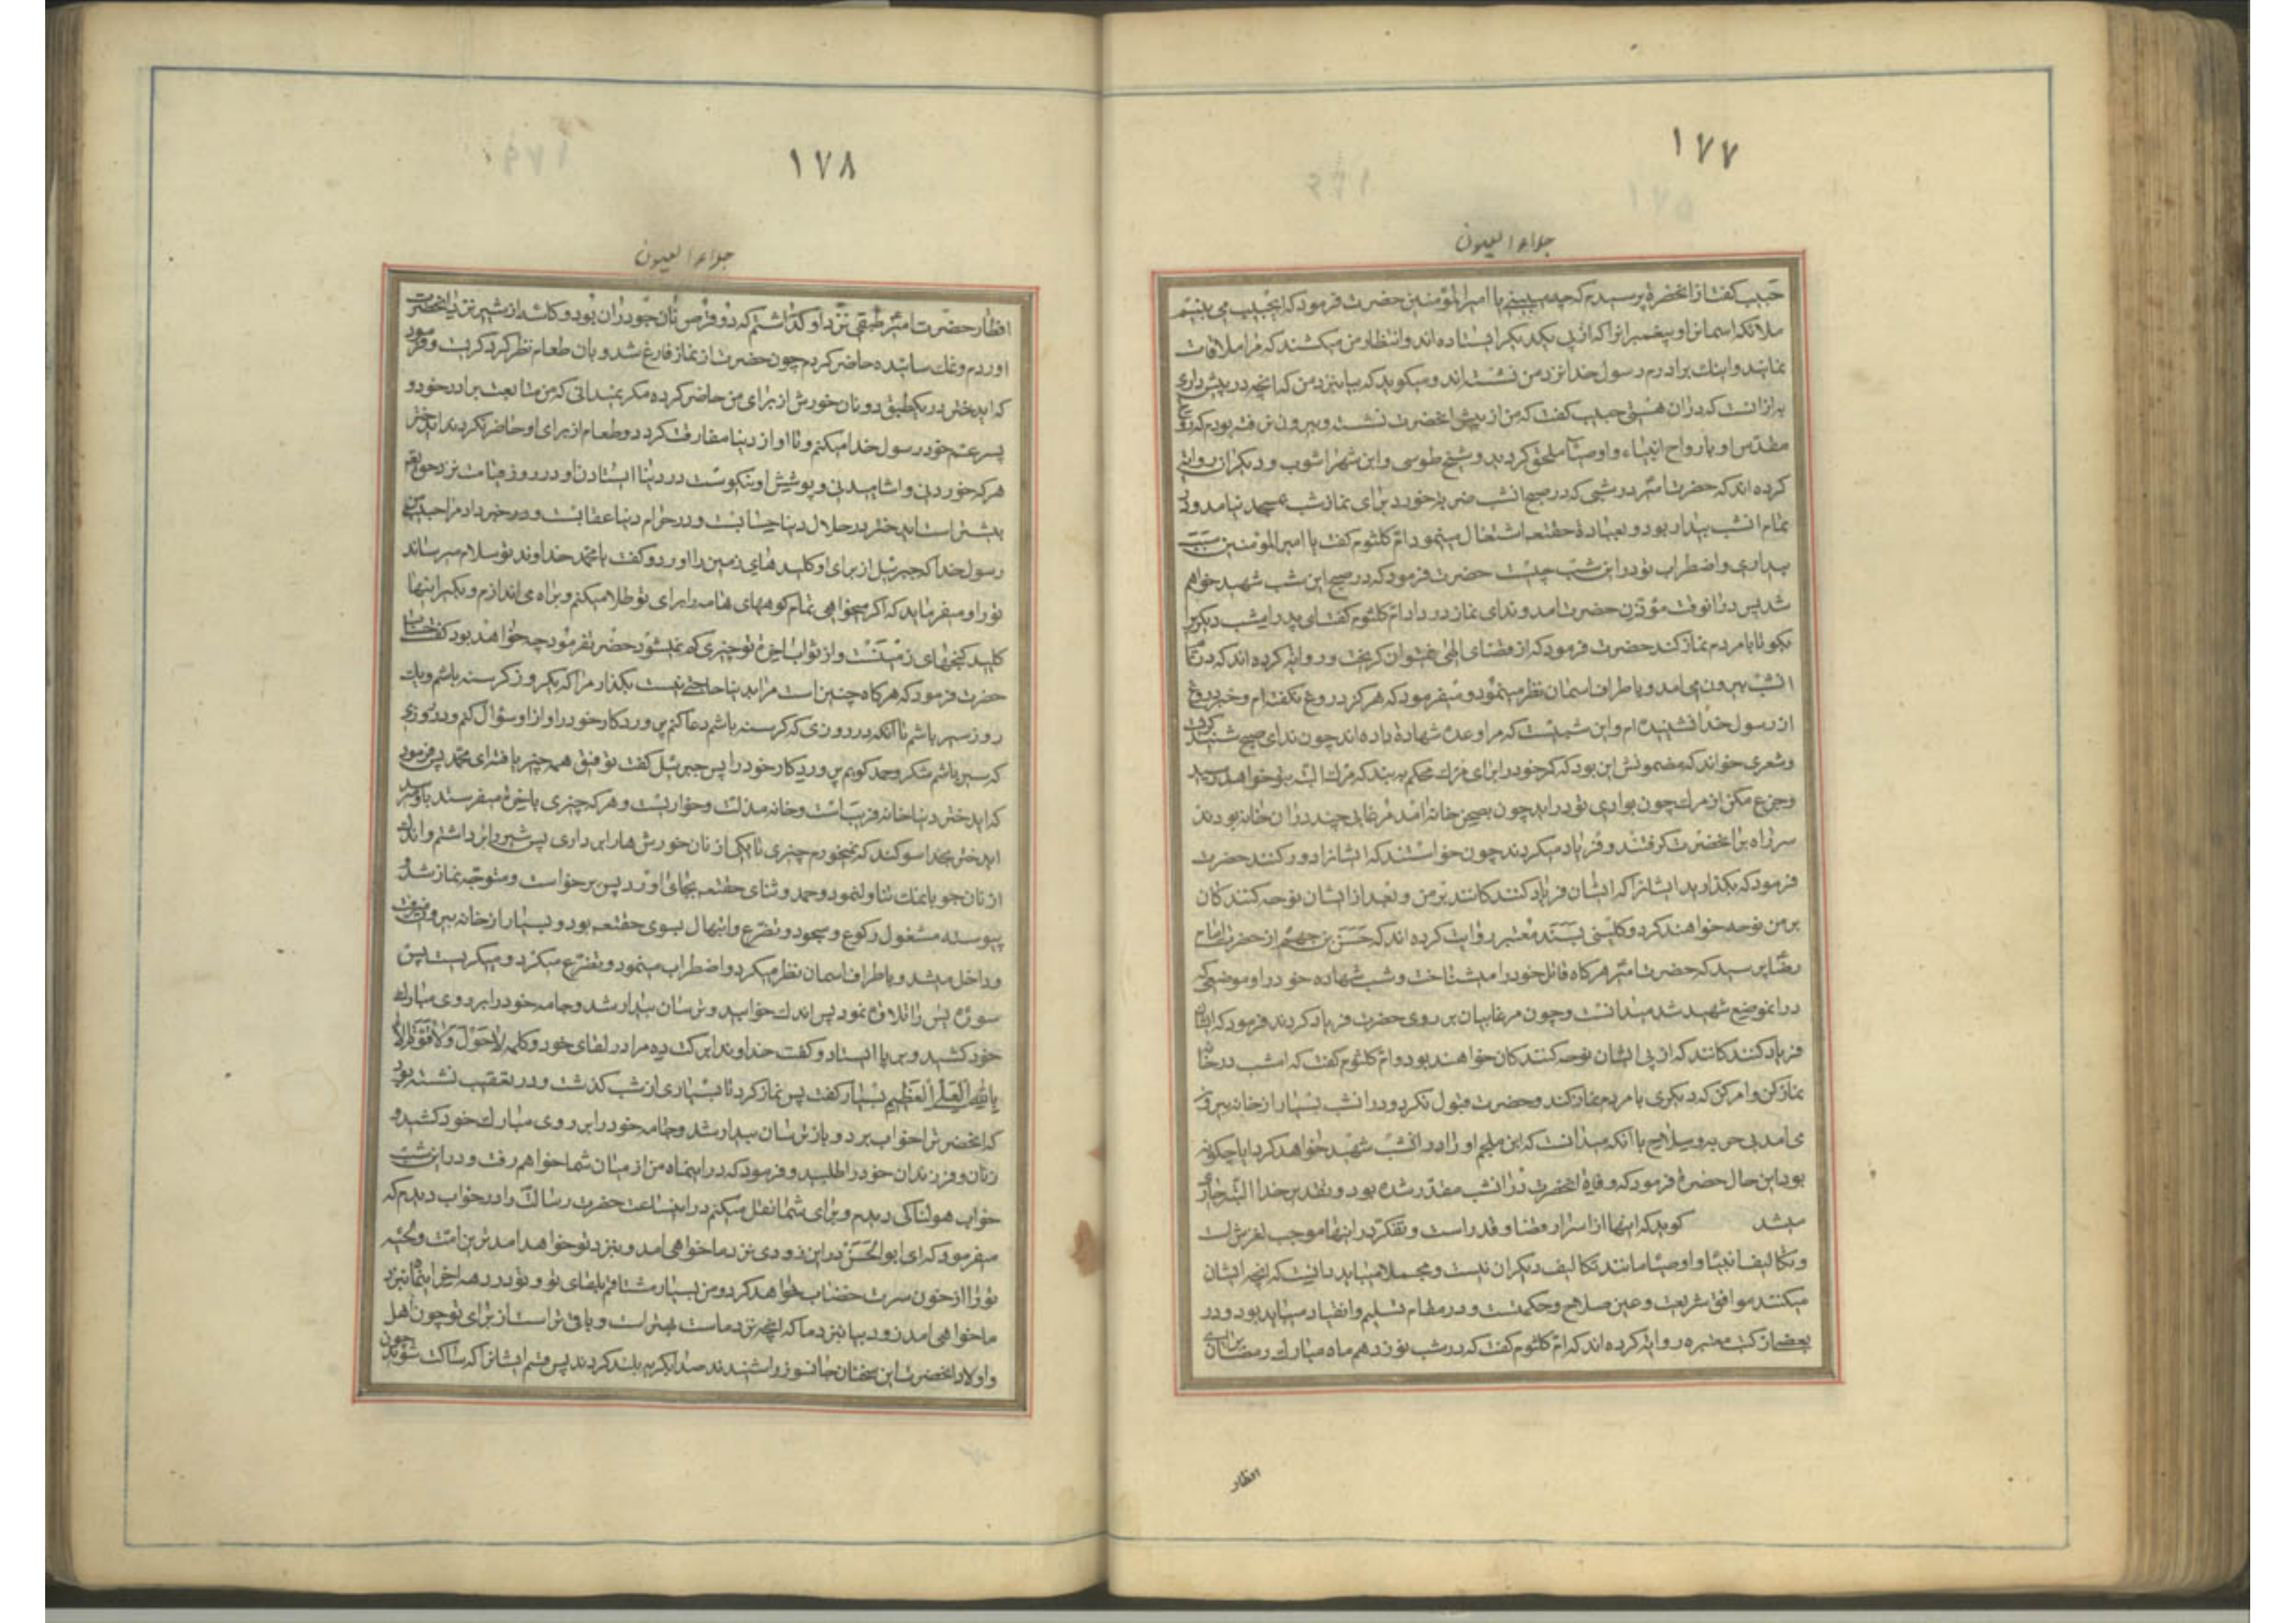 ١٧٧
جلاء العیون
حبیب گفت از انحضرة پرسیدم که چه می‌بینی یا امیرالمؤمنین حضرت فرمود که ایحبیب می بینم
ملائکه اسمانرا و پیغمبرانرا که از پی یکدیگر ایستاده اند و انتظار من میکشند که مرا ملاقات
نمایند و اینک برادرم رسول خدا نزد من نشسته اند و میکوید که بیا بنزد من که انچه در پیش داری
به از انست که در ان هستی حبیب گفت که من از پیش انحضرت نشسته و بیرون نرفته بودم که
مقدس او بارواح انبیاء و اوصیا ملحق گردید و شیخ طوسی و ابن شهراشوب و دیکران روایة
کرده اند که حضرت امیر در شبی که در صبح انشب ضربة خورد برای نماز شب بمسجد نیامد ولی
تمام انشب بیدار بود و بعبادة حقتعه اشتغال مینمود ام کلثوم گفت یا امیرالمؤمنین سبب
بیداری و اضطراب تو در این شب چیست حضرت فرمود که در صبح این شب شهید خواهم
شد پس در انوقت مؤذن حضرت امد و ندای نماز در داد ام کلثوم گفت ای پدر امشب دیکریرا
بکو تا با مردم نماز کند حضرت فرمود که از قضای الهی نمیتوان کریخت و روایة کرده اند که در تمام
انشب بیرون می امد و باطراف اسمان نظر مینمود و میفرمود که هرکز دروغ نکفته ام و خبر دروغ
از رسول خدا نشنیده ام و این شبیست که مرا وعده شهادة داده اند چون ندای صبح شنید
و شعری خواند که مضمونش این بود که کمر خود را برای مرک محکم به بند که مرک البته بتو خواهد رسید
و جزع مکن از مرک چون بوادی تو در اید چون بصحن خانه امد مرغابی چند در ان خانه بودند
سر راه بر انحضرت کرفتند و فریاد میکردند چون خواستند که ایشانرا دور کنند حضرت
فرمود که بکذارید ایشانرا که ایشان فریاد کنندکانند بر من و بعد از ایشان نوحه کنندکان
بر من نوحه خواهند کرد و کلینی بسند معتبر روایت کرده اند که حسن بن جهم از حضرت امام
رضا پرسید که حضرت امیر هرکاه قاتل خود را میشناخت و شب شهاده خود را و موضعی که
در انموضع شهید شد میدانست و چون مرغابیان بر روی حضرت فریاد کردند فرمود که ایشان
فریاد کنندکانند که از پی ایشان نوحه کنندکان خواهند بود و ام کلثوم گفت که امشب در خانه
نماز کن و امر کن که دیکری با مردم نماز کند و حضرت قبول نکرد و در انشب بسیار از خانه بیرون
می امد بی حربه و سلاح با انکه میدانست که ابن ملجم او را در انشب شهید خواهد کرد ایا چکونه
بود این حال حضرة فرمود که وفاة انحضرت در انشب مقدر شده بود و تقدیر خدا البته جاری
میشد کوید که اینها از اسرار قضا و قدر است و تفکر در اینها موجب لغزش است
و تکالیف انبیا و اوصیا مانند تکالیف دیکران نیست و مجملا میباید دانست که انچه ایشان
میکنند موافق شریعت و عین صلاح و حکمتست و در مقام تسلیم و انقیاد میباید بود و در
بعضی از کتب معتبره روایة کرده اند که ام کلثوم گفت که در شب نوزدهم ماه مبارک رمضان برای
افطار
١٧٨
جلاء العیون
افطار حضرت امیر طبقی نزد او کذاشتم که دو قرص نان جو در ان بود و کاسه از شیر نزد انحضرت
اوردم و نمک سائیده حاضر کردم چون حضرت از نماز فارغ شد و بان طعام نظر کرد کریست و فرمود
که ایدختر در یکطبق دو نان خورش از برای من حاضر کرده مکر نمیدانی که من متابعت برادر خود و
پسر عم خود رسول خدا میکنم و تا او از دنیا مفارقت کرد دو طعام از برای او حاضر نکردند ایدختر
هر که خوردنی و اشامیدنی و پوشش او نیکوست در دنیا ایستادن او در روز قیامت نزد حق تعه
بیشتر است ایدختر در حلال دنیا حسابست و در حرام دنیا عقابست و خبر داد مرا حبیب من
رسول خدا که جبرئیل از برای او کلیدهای زمین را اورد و کفت یا محمد خداوند تو سلام میرساند
تو را و میفرماید که اکر میخواهی تمام کوههای تهامه را برای تو طلا میکنم و براه می اندازم و بکیر اینها
کلید کنجهای زمینست و از ثواب اخرة تو چیزی کم نمیشود حضرت فرمود چه خواهد بود کفت
حضرت فرمود که هرکاه چنین است مرا بدنیا حاجتی نیست بکذار مرا که یکروز کرسنه باشم و یک
روز سیر باشم تا انکه در روزی که کرسنه باشم دعا کنم پروردکار خود را و از او سؤال کنم و در روزی
که سیر باشم شکر و حمد کویم پروردکار خود را پس جبرئیل کفت توفیق همه چیز یافته ای محمد پس فرمود
که ایدختر دنیا خانه فریبست و خانه مذلت و خواریست و هر که چیزی باخرة میفرستد باو میرسد
ایدختر بخدا سوکند که نمیخورم چیزی تا یکی از نان خورش ها را برداری پس شیر را برداشتم و اندک
از نان جو با نمک تناول نمود و حمد و ثنای حقتعه بجای اورد پس برخواست و متوجه نماز شد و
پیوسته مشغول رکوع و سجود و تضرع و ابتهال بسوی حقتعه بود و بسیار از خانه بیرون میرفت
و داخل میشد و باطراف اسمان نظر میکرد و اضطراب مینمود و تضرع میکرد و میکریست پس
سوره یس را تلاوة نمود پس اندک خوابید و ترسان بیدار شد و جامه خود را بر روی مبارک
خود کشید و بر پا ایستاد و کفت خداوندا برکت ده مرا در لقای خود و کلمه لا حول و لا قوة الا
بالله العلی العظیم بسیار کفت پس نماز کرد تا بسیاری از شب کذشت و در تعقیب نشسته بود
که انحضرترا خواب برد و باز ترسان بیدار شد و جامه خود را بر روی مبارک خود کشید و
زنان و فرزندان خود را طلبید و فرمود که در اینماه من از میان شما خواهم رفت و در این شب
خواب هولناکی دیدم و برای شما نقل میکنم در اینساعت حضرت رسالت را در خواب دیدم که
میفرمود که ای ابوالحسن در این زودی نزد ما خواهی امد و بنزد تو خواهد امد بدترین امت و محاسن
تو را از خون سرت خضاب خواهد کرد و من بسیار مشتاقم بلقای تو و تو در دهه اخر اینماه بنزد
ما خواهی امد زود بیا بنزد ما که انچه نزد ماست بهتر است و باقی تر است از برای تو چون اهل
و اولاد انحضرت این سخنان جانسوز را شنیدند صدا بکریه بلند کردند پس قسم داد ایشانرا که ساکت شوید چون